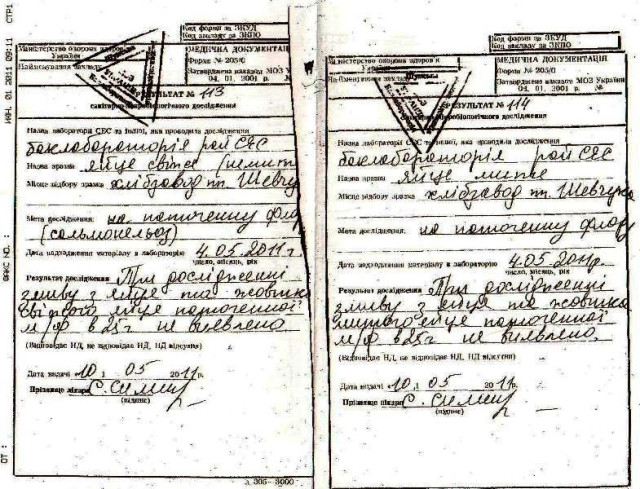 ИЮН. 01 2011 09:11 СТР1
ФАКС NO. :
ОТ :
Код форми за ЗКУД
Код закладу за ЗКПО
Міністерство охорони здоров'я
України
Найменування закладу
МЕДИЧНА ДОКУМЕНТАЦІЯ
Форма № 205/0
Затверджена наказом МОЗ У
04. 01. 2001 р.
РЕЗУЛЬТАТ № 113
санітарно-мікробіологічного дослідження
Назва лабораторії СЕС та іншої, яка проводила дослідження
баклабораторія рай СЕС
Назва зразка яйце свіже (немит
Місце відбору зразка хлібзавод пп. Шевчук
Мета дослідження: на патогенну флор
(сальмонельоз)
Дата надходження матеріалу в лабораторію 4.05.2011 г
число, місяць, рік
Результат дослідження При дослідженні
змиву з яйця та жовтка
свіжого яйце патогенної
м/ф в 25г не виявлено
(Відповідає НД, не відповідає НД, НД відсутня)
Дата видачі «10» 05 2011г.
Прізвище лікаря С.
(підпис)
Код форми за ЗКУД
Код закладу за ЗКПО
Міністерство охорони здоров'я
України
Найменування закладу
МЕДИЧНА ДОКУМЕНТАЦІЯ
Форма № 205/0
Затверджена наказом МОЗ України
04. 01. 2001 р. №
РЕЗУЛЬТАТ № 114
санітарно-мікробіологічного дослідження
Назва лабораторії СЕС та іншої, що проводила дослідження
баклабораторія рай СЕС
Назва зразка яйце мите
Місце відбору зразка хлібзавод пп. Шевчука
Мета дослідження: на патогенну флору
Дата надходження матеріалу в лабораторію 4.05.2011р.
число, місяць, рік
Результат дослідження При дослідженні
змиву з яйця та жовтка
митого яйце патогенної
м/ф в 25г не виявлено.
(Відповідає НД, не відповідає НД, НД відсутня)
Дата видачі «10» 05 2011р.
Прізвище лікаря С.
(підпис)